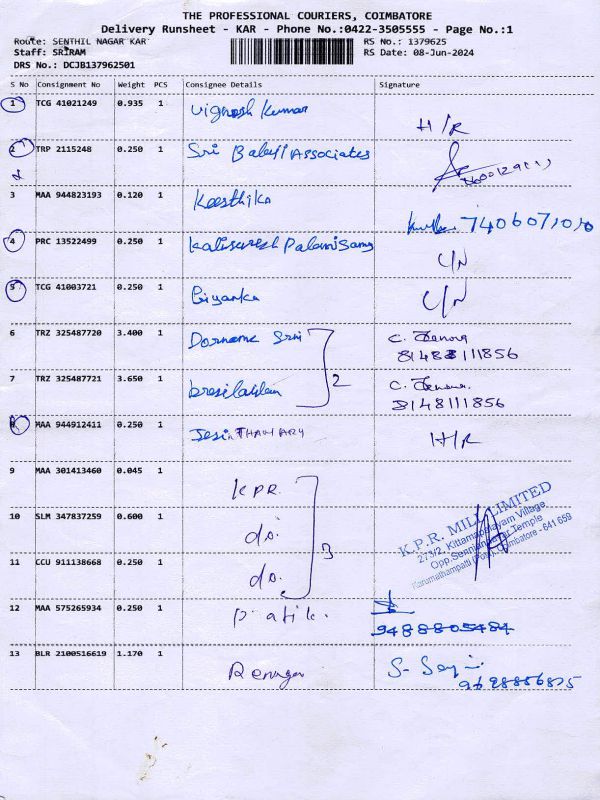 THE PROFESSIONAL COURIERS, COIMBATORE
Delivery Runsheet - KAR - Phone No.:0422-3505555 - Page No.:1
Route: SENTHIL NAGAR KAR
RS No.: 1379625
Staff: SRIRAM
RS Date: 08-Jun-2024
DRS No.: DCJB137962501
S No Consignment No Weight PCS Consignee Details Signature
1 TCG 41021249 0.935 1 Vignesh Kumar H/R
2 TRP 2115248 0.250 1 Sri Balaji Associates
3 MAA 944823193 0.120 1 Keerthika 7406071010
4 PRC 13522499 0.250 1 Kalisuresh Palanisamy C/N
5 TCG 41003721 0.250 1 Priyanka C/N
6 TRZ 325487720 3.400 1 Sri C.
8148111856
7 TRZ 325487721 3.650 1 2 C.
8148111856
8 MAA 944912411 0.250 1 H/R
9 MAA 301413460 0.045 1 KPR.
10 SLM 347837259 0.600 1 do.
11 CCU 911138668 0.250 1 do. 3
K.P.R. MILL LIMITED
273/2, Kittampalayam Village
Opp.Senniandavar Temple
Karumathampatti (Post), Coimbatore - 641 659
12 MAA 575265934 0.250 1 Pratik.
9488805484
13 BLR 2100516619 1.170 1 S-